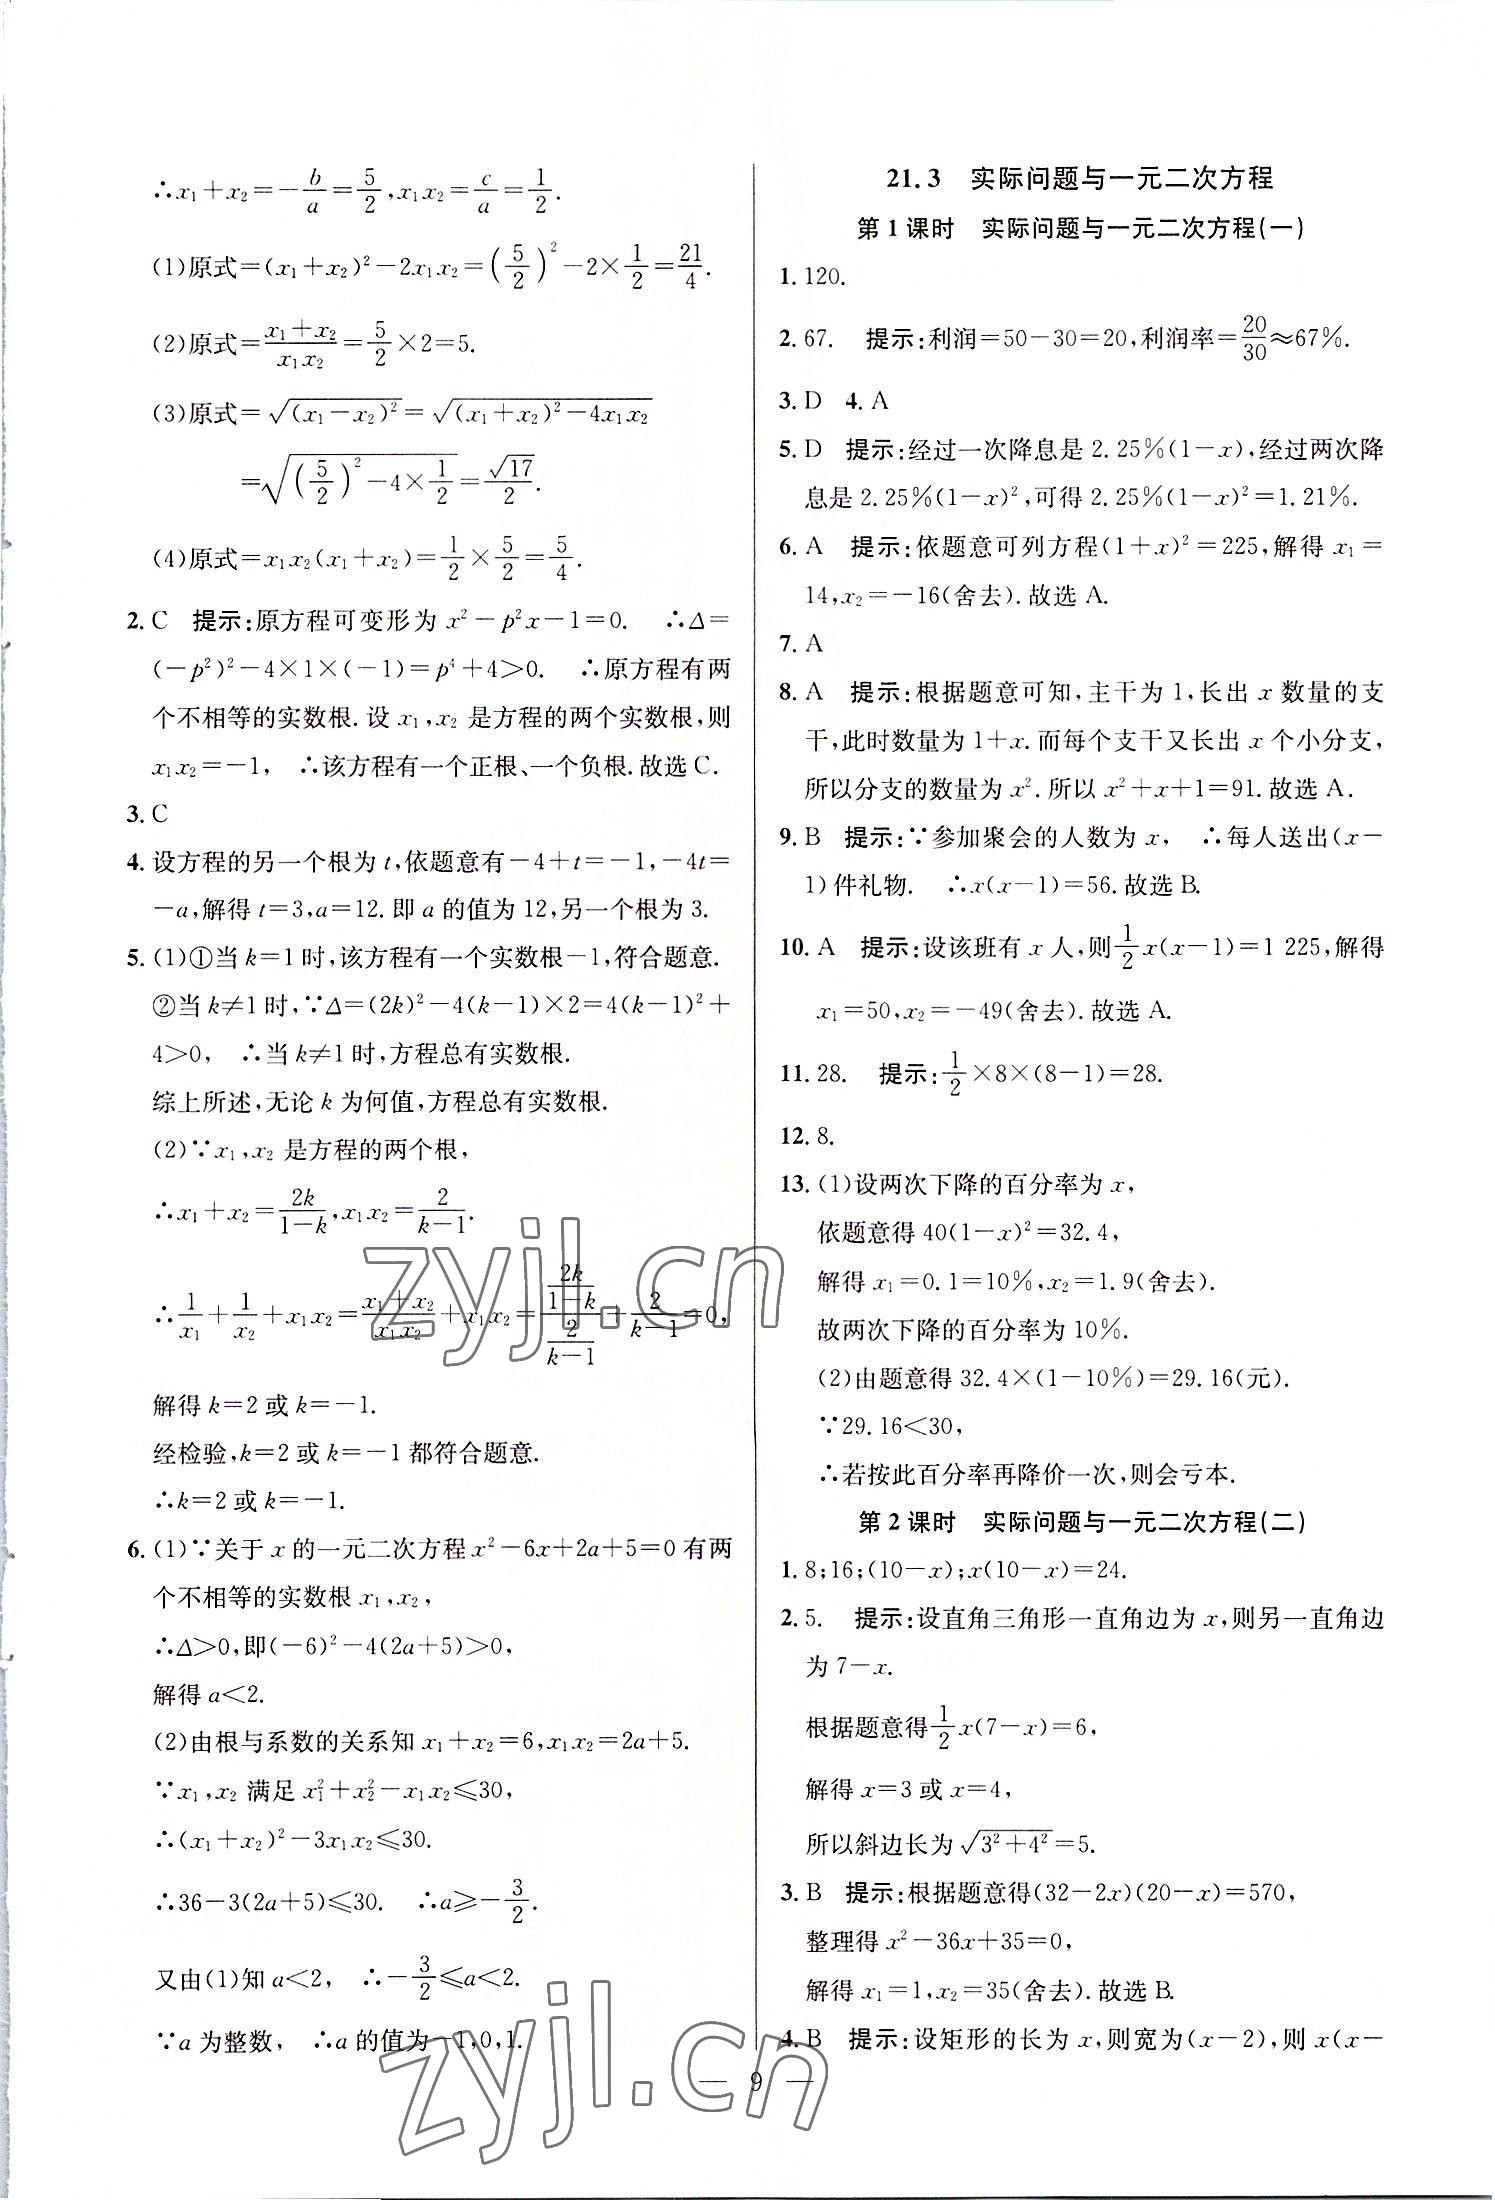 ∴x₁+x₂=−b/a=5/2,x₁x₂=c/a=1/2.
(1)原式=(x₁+x₂)²−2x₁x₂=(5/2)²−2×1/2=21/4.
(2)原式=(x₁+x₂)/(x₁x₂)=5/2×2=5.
(3)原式=√((x₁−x₂)²)=√((x₁+x₂)²−4x₁x₂)
=√((5/2)²−4×1/2)=√17/2.
(4)原式=x₁x₂(x₁+x₂)=1/2×5/2=5/4.
2. C 提示:原方程可变形为 x²−p²x−1=0. ∴Δ=
(−p²)²−4×1×(−1)=p⁴+4>0. ∴原方程有两
个不相等的实数根.设 x₁,x₂ 是方程的两个实数根,则
x₁x₂=−1, ∴该方程有一个正根、一个负根.故选 C.
3. C
4. 设方程的另一个根为 t,依题意有−4+t=−1,−4t=
−a,解得 t=3,a=12.即 a 的值为 12,另一个根为 3.
5. (1)①当 k=1 时,该方程有一个实数根−1,符合题意.
②当 k≠1 时,∵Δ=(2k)²−4(k−1)×2=4(k−1)²+
4>0, ∴当 k≠1 时,方程总有实数根.
综上所述,无论 k 为何值,方程总有实数根.
(2)∵x₁,x₂ 是方程的两个根,
∴x₁+x₂=2k/(1−k),x₁x₂=2/(k−1).
∴1/x₁+1/x₂+x₁x₂=(x₁+x₂)/(x₁x₂)+x₁x₂=(2k/(1−k))/(2/(k−1))+2/(k−1)=0,
解得 k=2 或 k=−1.
经检验,k=2 或 k=−1 都符合题意.
∴k=2 或 k=−1.
6. (1)∵关于 x 的一元二次方程 x²−6x+2a+5=0 有两
个不相等的实数根 x₁,x₂,
∴Δ>0,即(−6)²−4(2a+5)>0,
解得 a<2.
(2)由根与系数的关系知 x₁+x₂=6,x₁x₂=2a+5.
∵x₁,x₂ 满足 x₁²+x₂²−x₁x₂≤30,
∴(x₁+x₂)²−3x₁x₂≤30.
∴36−3(2a+5)≤30. ∴a≥−3/2.
又由(1)知 a<2, ∴−3/2≤a<2.
∵a 为整数, ∴a 的值为−1,0,1.
21.3 实际问题与一元二次方程
第 1 课时 实际问题与一元二次方程(一)
1. 120.
2. 67. 提示:利润=50−30=20,利润率=20/30≈67%.
3. D 4. A
5. D 提示:经过一次降息是 2.25%(1−x),经过两次降
息是 2.25%(1−x)²,可得 2.25%(1−x)²=1.21%.
6. A 提示:依题意可列方程(1+x)²=225,解得 x₁=
14,x₂=−16(舍去).故选 A.
7. A
8. A 提示:根据题意可知,主干为 1,长出 x 数量的支
干,此时数量为 1+x.而每个支干又长出 x 个小分支,
所以分支的数量为 x².所以 x²+x+1=91.故选 A.
9. B 提示:∵参加聚会的人数为 x, ∴每人送出(x−
1)件礼物. ∴x(x−1)=56.故选 B.
10. A 提示:设该班有 x 人,则1/2x(x−1)=1 225,解得
x₁=50,x₂=−49(舍去).故选 A.
11. 28. 提示:1/2×8×(8−1)=28.
12. 8.
13. (1)设两次下降的百分率为 x,
依题意得 40(1−x)²=32.4,
解得 x₁=0.1=10%,x₂=1.9(舍去).
故两次下降的百分率为 10%.
(2)由题意得 32.4×(1−10%)=29.16(元).
∵29.16<30,
∴若按此百分率再降价一次,则会亏本.
第 2 课时 实际问题与一元二次方程(二)
1. 8;16;(10−x);x(10−x)=24.
2. 5. 提示:设直角三角形一直角边为 x,则另一直角边
为 7−x.
根据题意得1/2x(7−x)=6,
解得 x=3 或 x=4,
所以斜边长为√(3²+4²)=5.
3. B 提示:根据题意得(32−2x)(20−x)=570,
整理得 x²−36x+35=0,
解得 x₁=1,x₂=35(舍去).故选 B.
4. B 提示:设矩形的长为 x,则宽为(x−2),则 x(x−
— 9 —
zyjl.cn
zyjl.cn